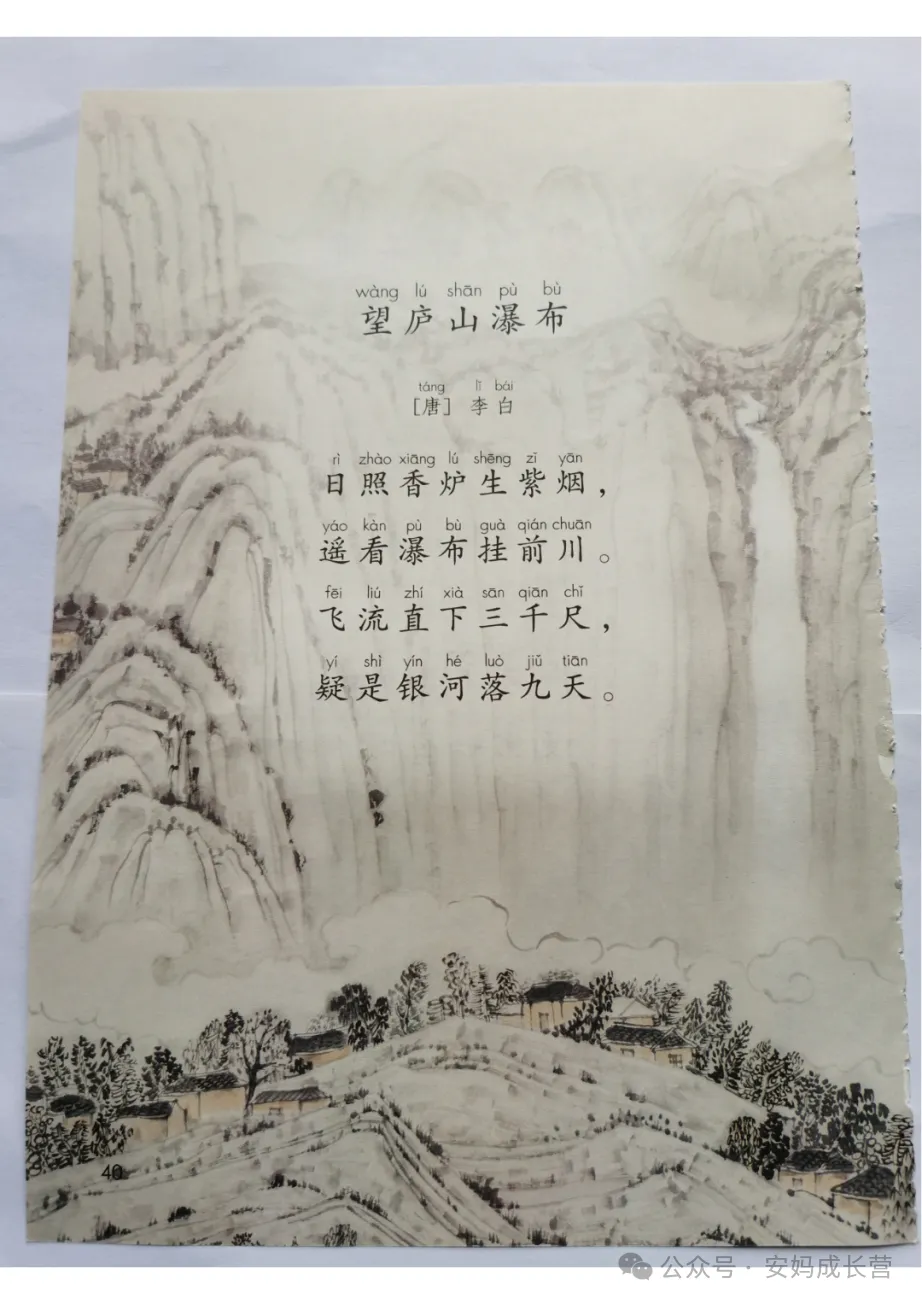 wàng lú shān pù bù
望庐山瀑布
táng lǐ bái
[唐] 李白
rì zhào xiāng lú shēng zǐ yān
日照香炉生紫烟，
yáo kàn pù bù guà qián chuān
遥看瀑布挂前川。
fēi liú zhí xià sān qiān chǐ
飞流直下三千尺，
yí shì yín hé luò jiǔ tiān
疑是银河落九天。
40
公众号 · 安妈成长营